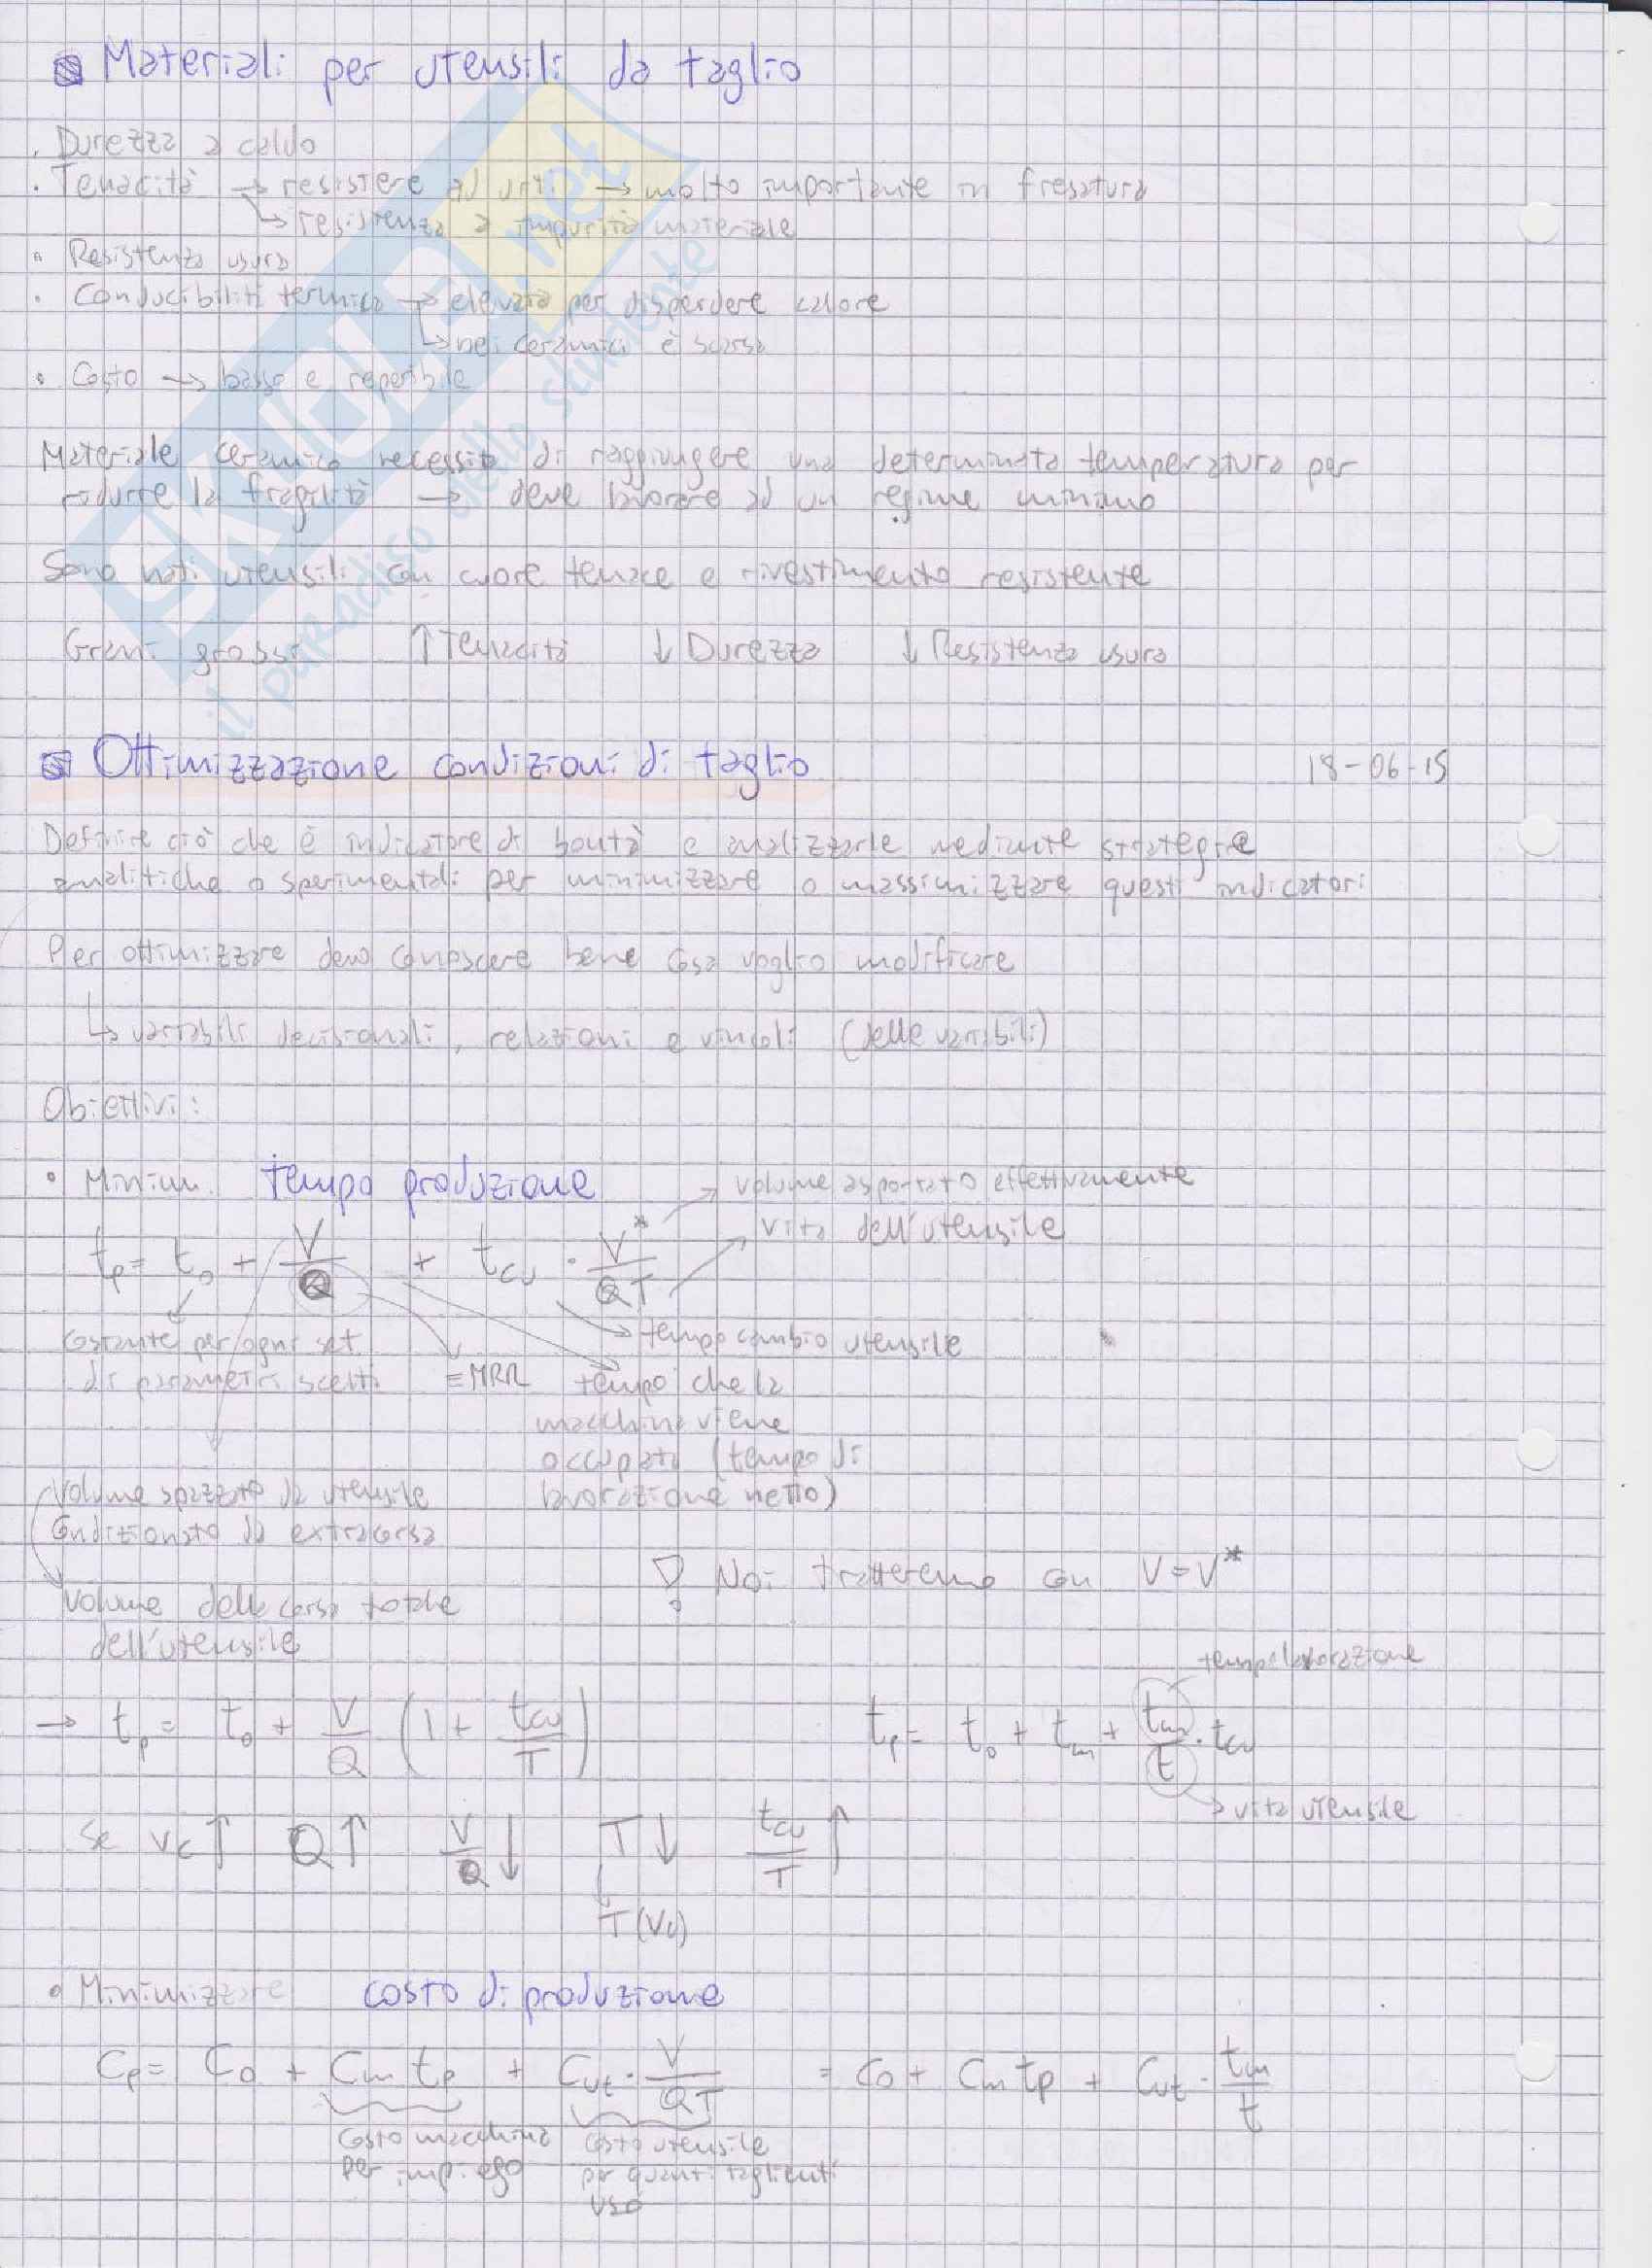 Materiali per utensili da taglio
. Durezza a caldo
. Tenacità → resistere ad urti → molto importante in fresatura
↳ resistenza a impurità materiale
. Resistenza usura
. Conducibilità termica → elevata per disperdere calore
↳ nei ceramici è scarsa
. Costo → basso e reperibile
Materiale ceramico necessita di raggiungere una determinata temperatura per
ridurre la fragilità → deve lavorare ad un regime minimo
Sono nati utensili con cuore tenace e rivestimento resistente
Grani grossi ↑ Tenacità ↓ Durezza ↓ Resistenza usura
Ottimizzazione condizioni di taglio 18-06-15
Definire ciò che è indicatore di bontà e analizzarle mediante strategie
analitiche o sperimentali per minimizzare o massimizzare questi indicatori
Per ottimizzare devo conoscere bene cosa voglio modificare
↳ variabili decisionali, relazioni e vincoli (delle variabili)
Obiettivi:
• Minim. tempo produzione
volume asportato effettivamente
vita dell'utensile
tp = t0 + V/Q + tcu · V*/QT
costante per ogni set
di parametri scelti
= MRR
tempo cambio utensile
tempo che la
macchina viene
occupata (tempo di
lavorazione netto)
Volume spazzato da utensile
condizionato da extracorsa
Volume della corsa totale
dell'utensile
! Noi tratteremo con V = V*
→ tp = t0 + V/Q (1 + tcu/T)
tp = t0 + tm + tm/t · tcu
tempo lavorazione
vita utensile
Se vc ↑ Q ↑ V/Q ↓ T ↓ tcu/T ↑
T(Vc)
• Minimizzare costo di produzione
Cp = C0 + Cm tp + Cut · V/QT = C0 + Cm tp + Cut · tm/t
costo macchina
per impiego
costo utensile
per quanti taglienti
uso
SKUOLA.net
il paradiso dello studente